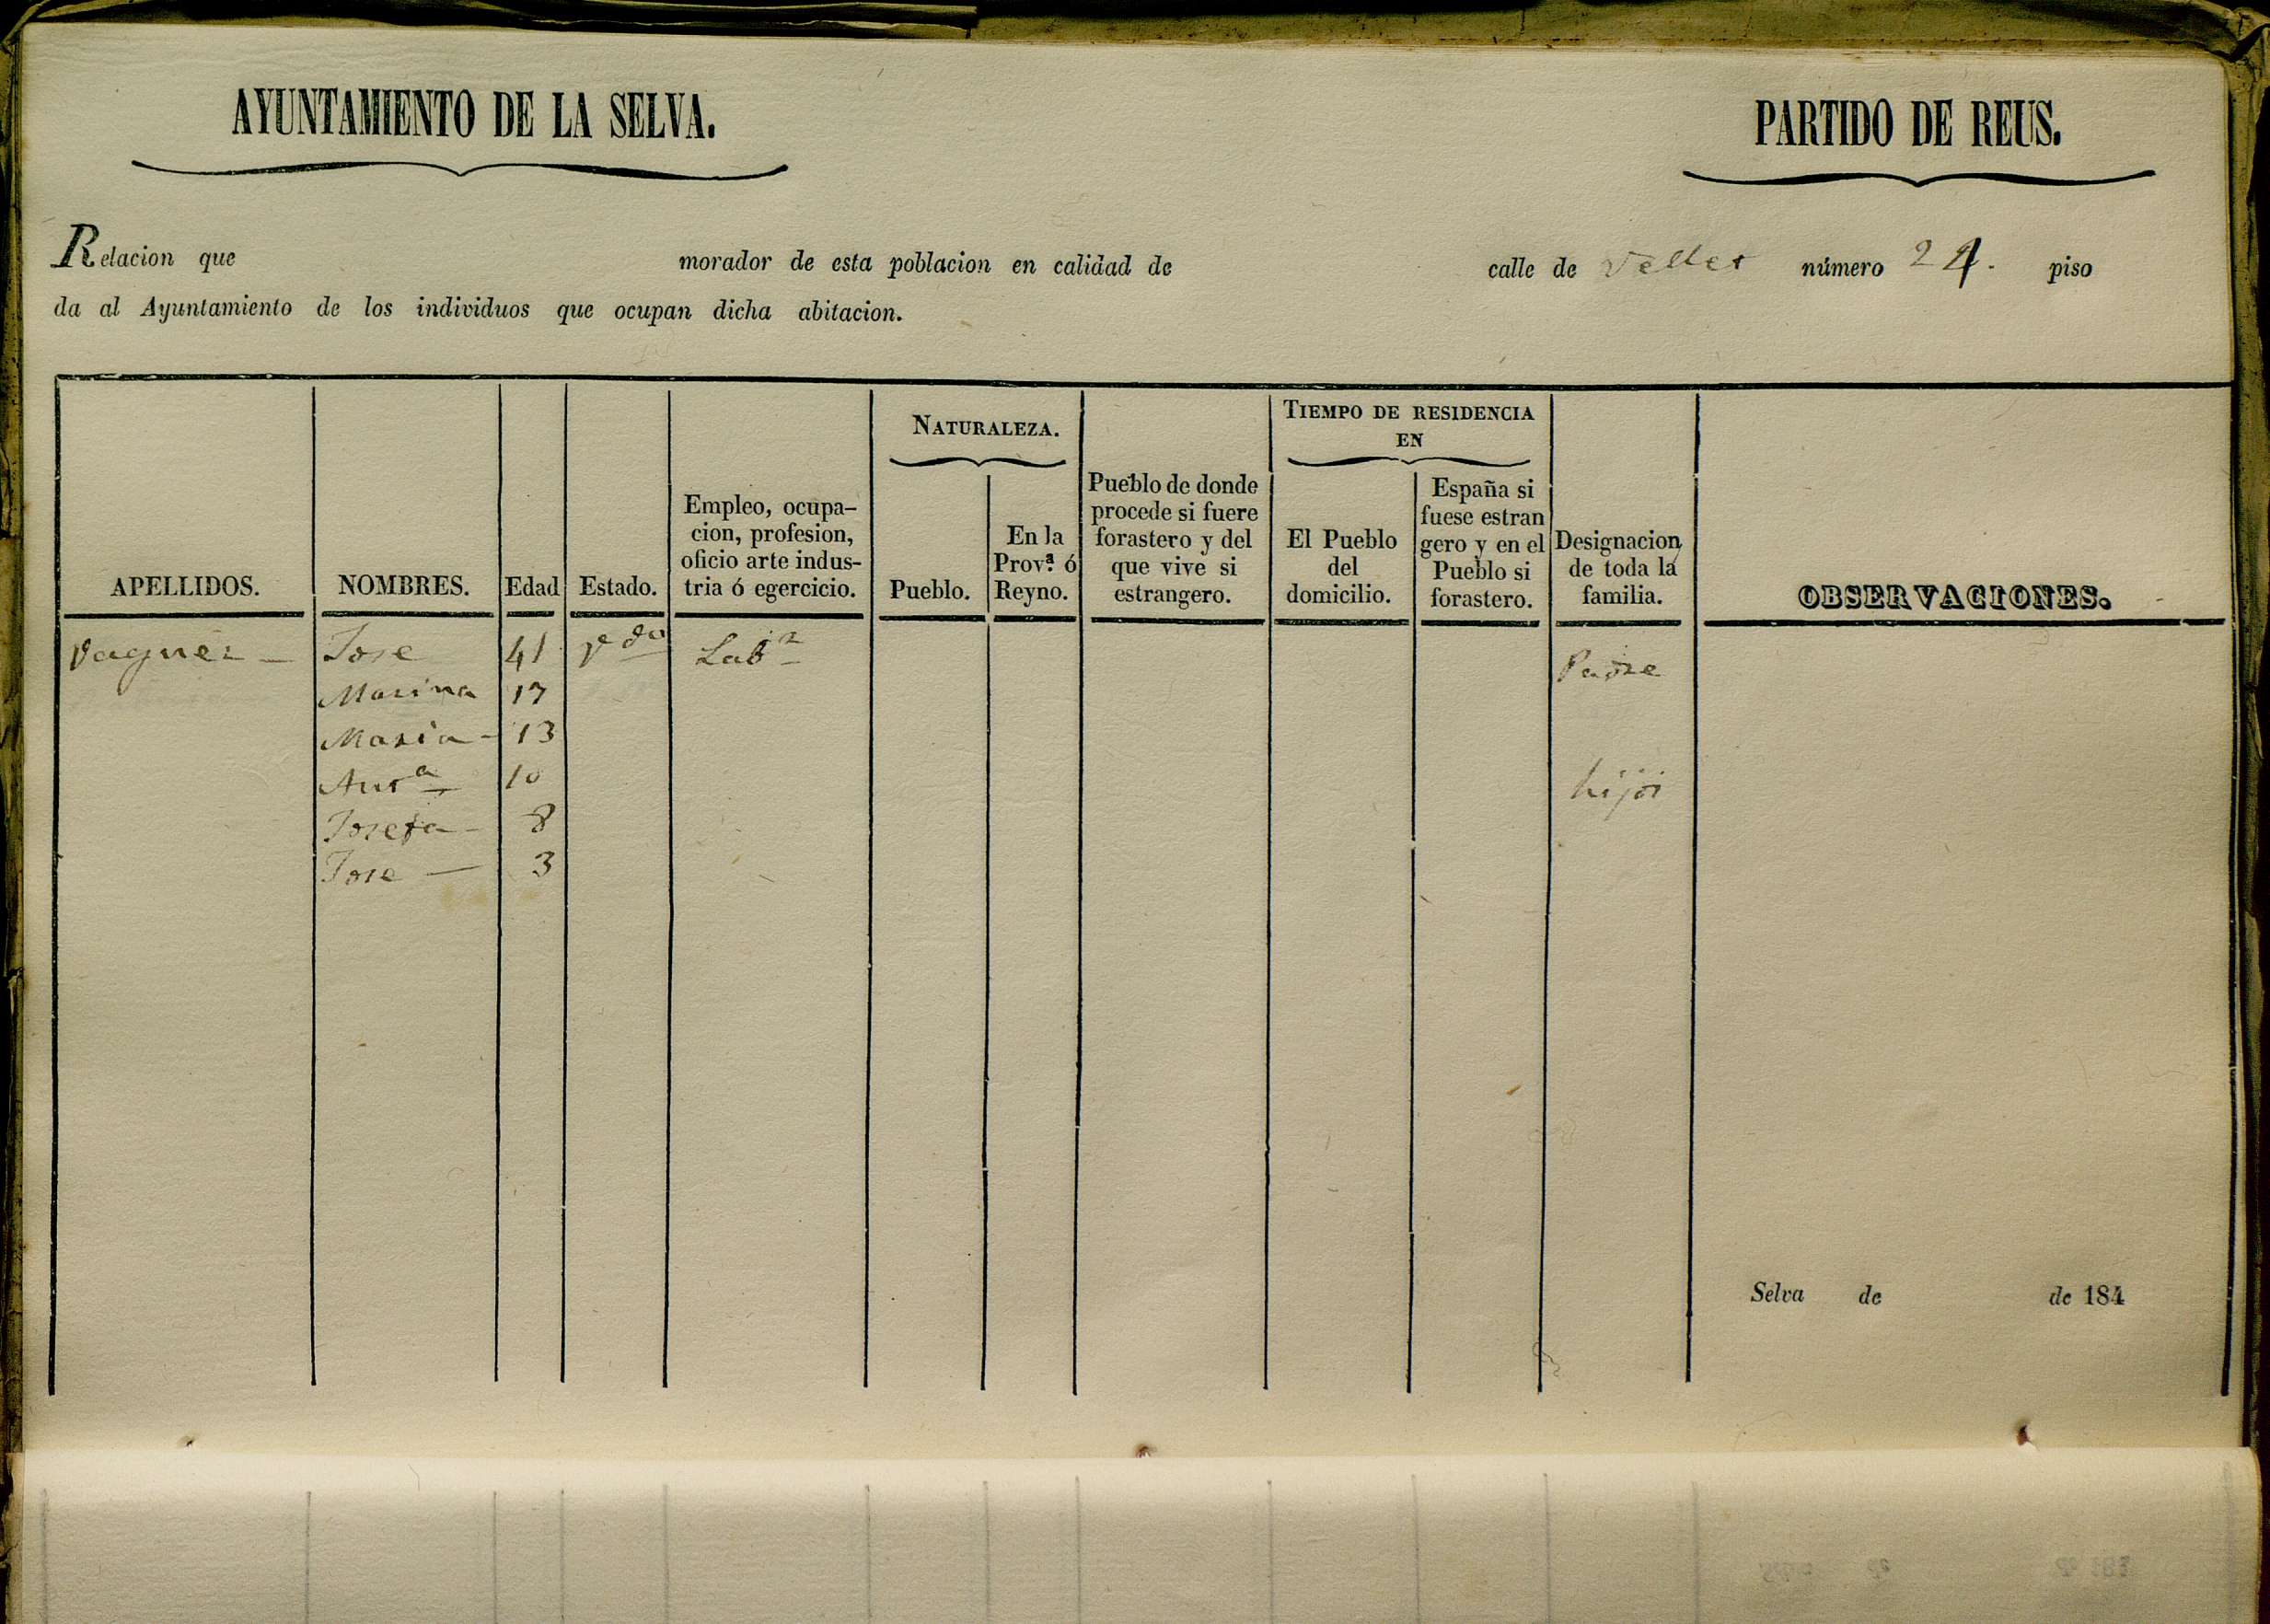 AYUNTAMIENTO DE LA SELVA.
PARTIDO DE REUS.
Relacion que morador de esta poblacion en calidad de calle de Vellet número piso
da al Ayuntamiento de los individuos que ocupan dicha abitacion.
APELLIDOS.
NOMBRES.
Edad
Estado.
Empleo, ocupa-
cion, profesion,
oficio arte indus-
tria ó egercicio.
NATURALEZA.
Pueblo.
En la
Prov.ª ó
Reyno.
Pueblo de donde
procede si fuere
forastero y del
que vive si
estrangero.
TIEMPO DE RESIDENCIA
EN
El Pueblo
del
domicilio.
España si
fuese estran
gero y en el
Pueblo si
forastero.
Designacion
de toda la
familia.
OBSERVACIONES.
Vaguer - Jose 41 Vdo Labr Padre
Marina 17
Maria - 13
Anta 10 hijos
Josefa - 8
Jose — 3
Selva de de 184